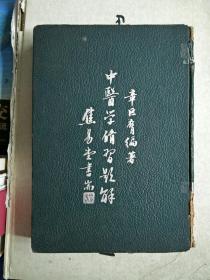 章巨膺編著
中醫学脩習題解
焦易堂書耑